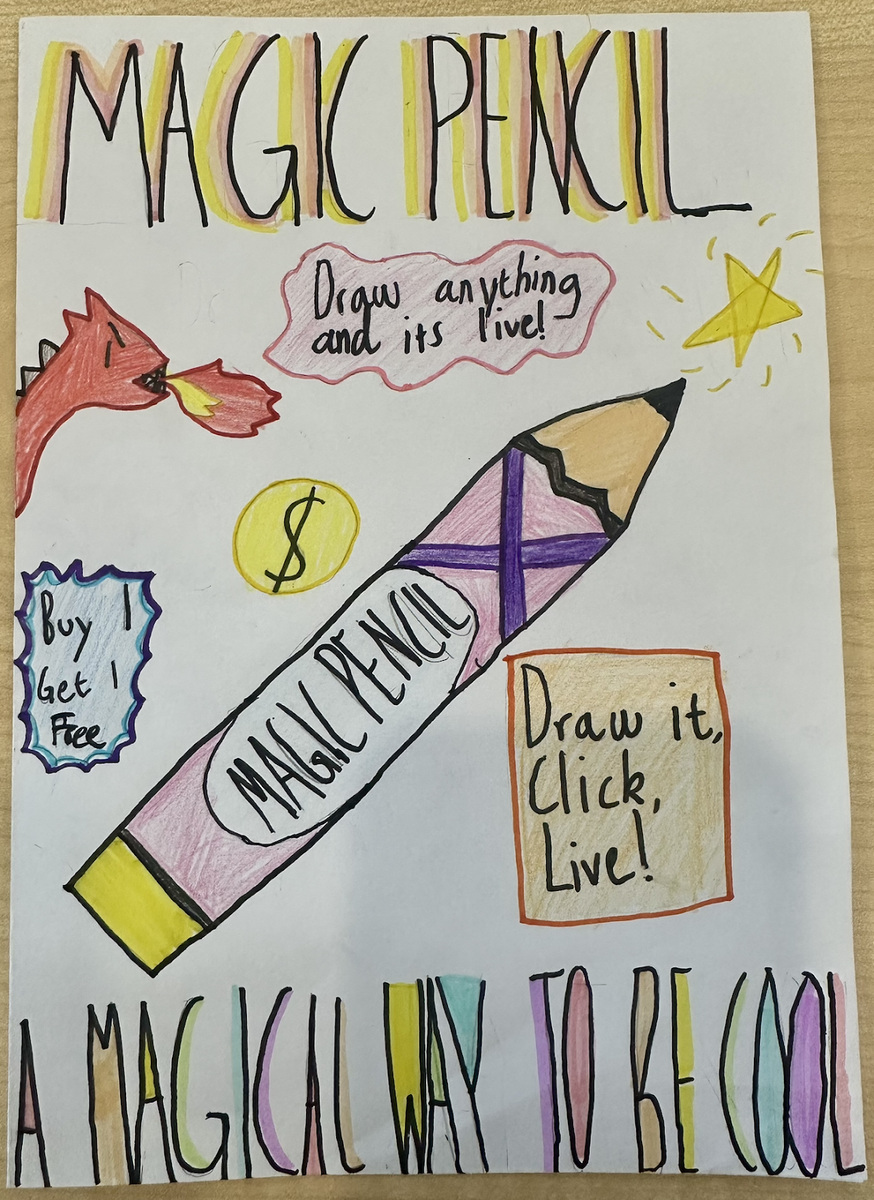 MAGIC PENCIL
Draw anything
and its live!
$
Buy 1
Get 1
Free
MAGIC PENCIL
Draw it,
Click,
Live!
A MAGICAL WAY TO BE COOL